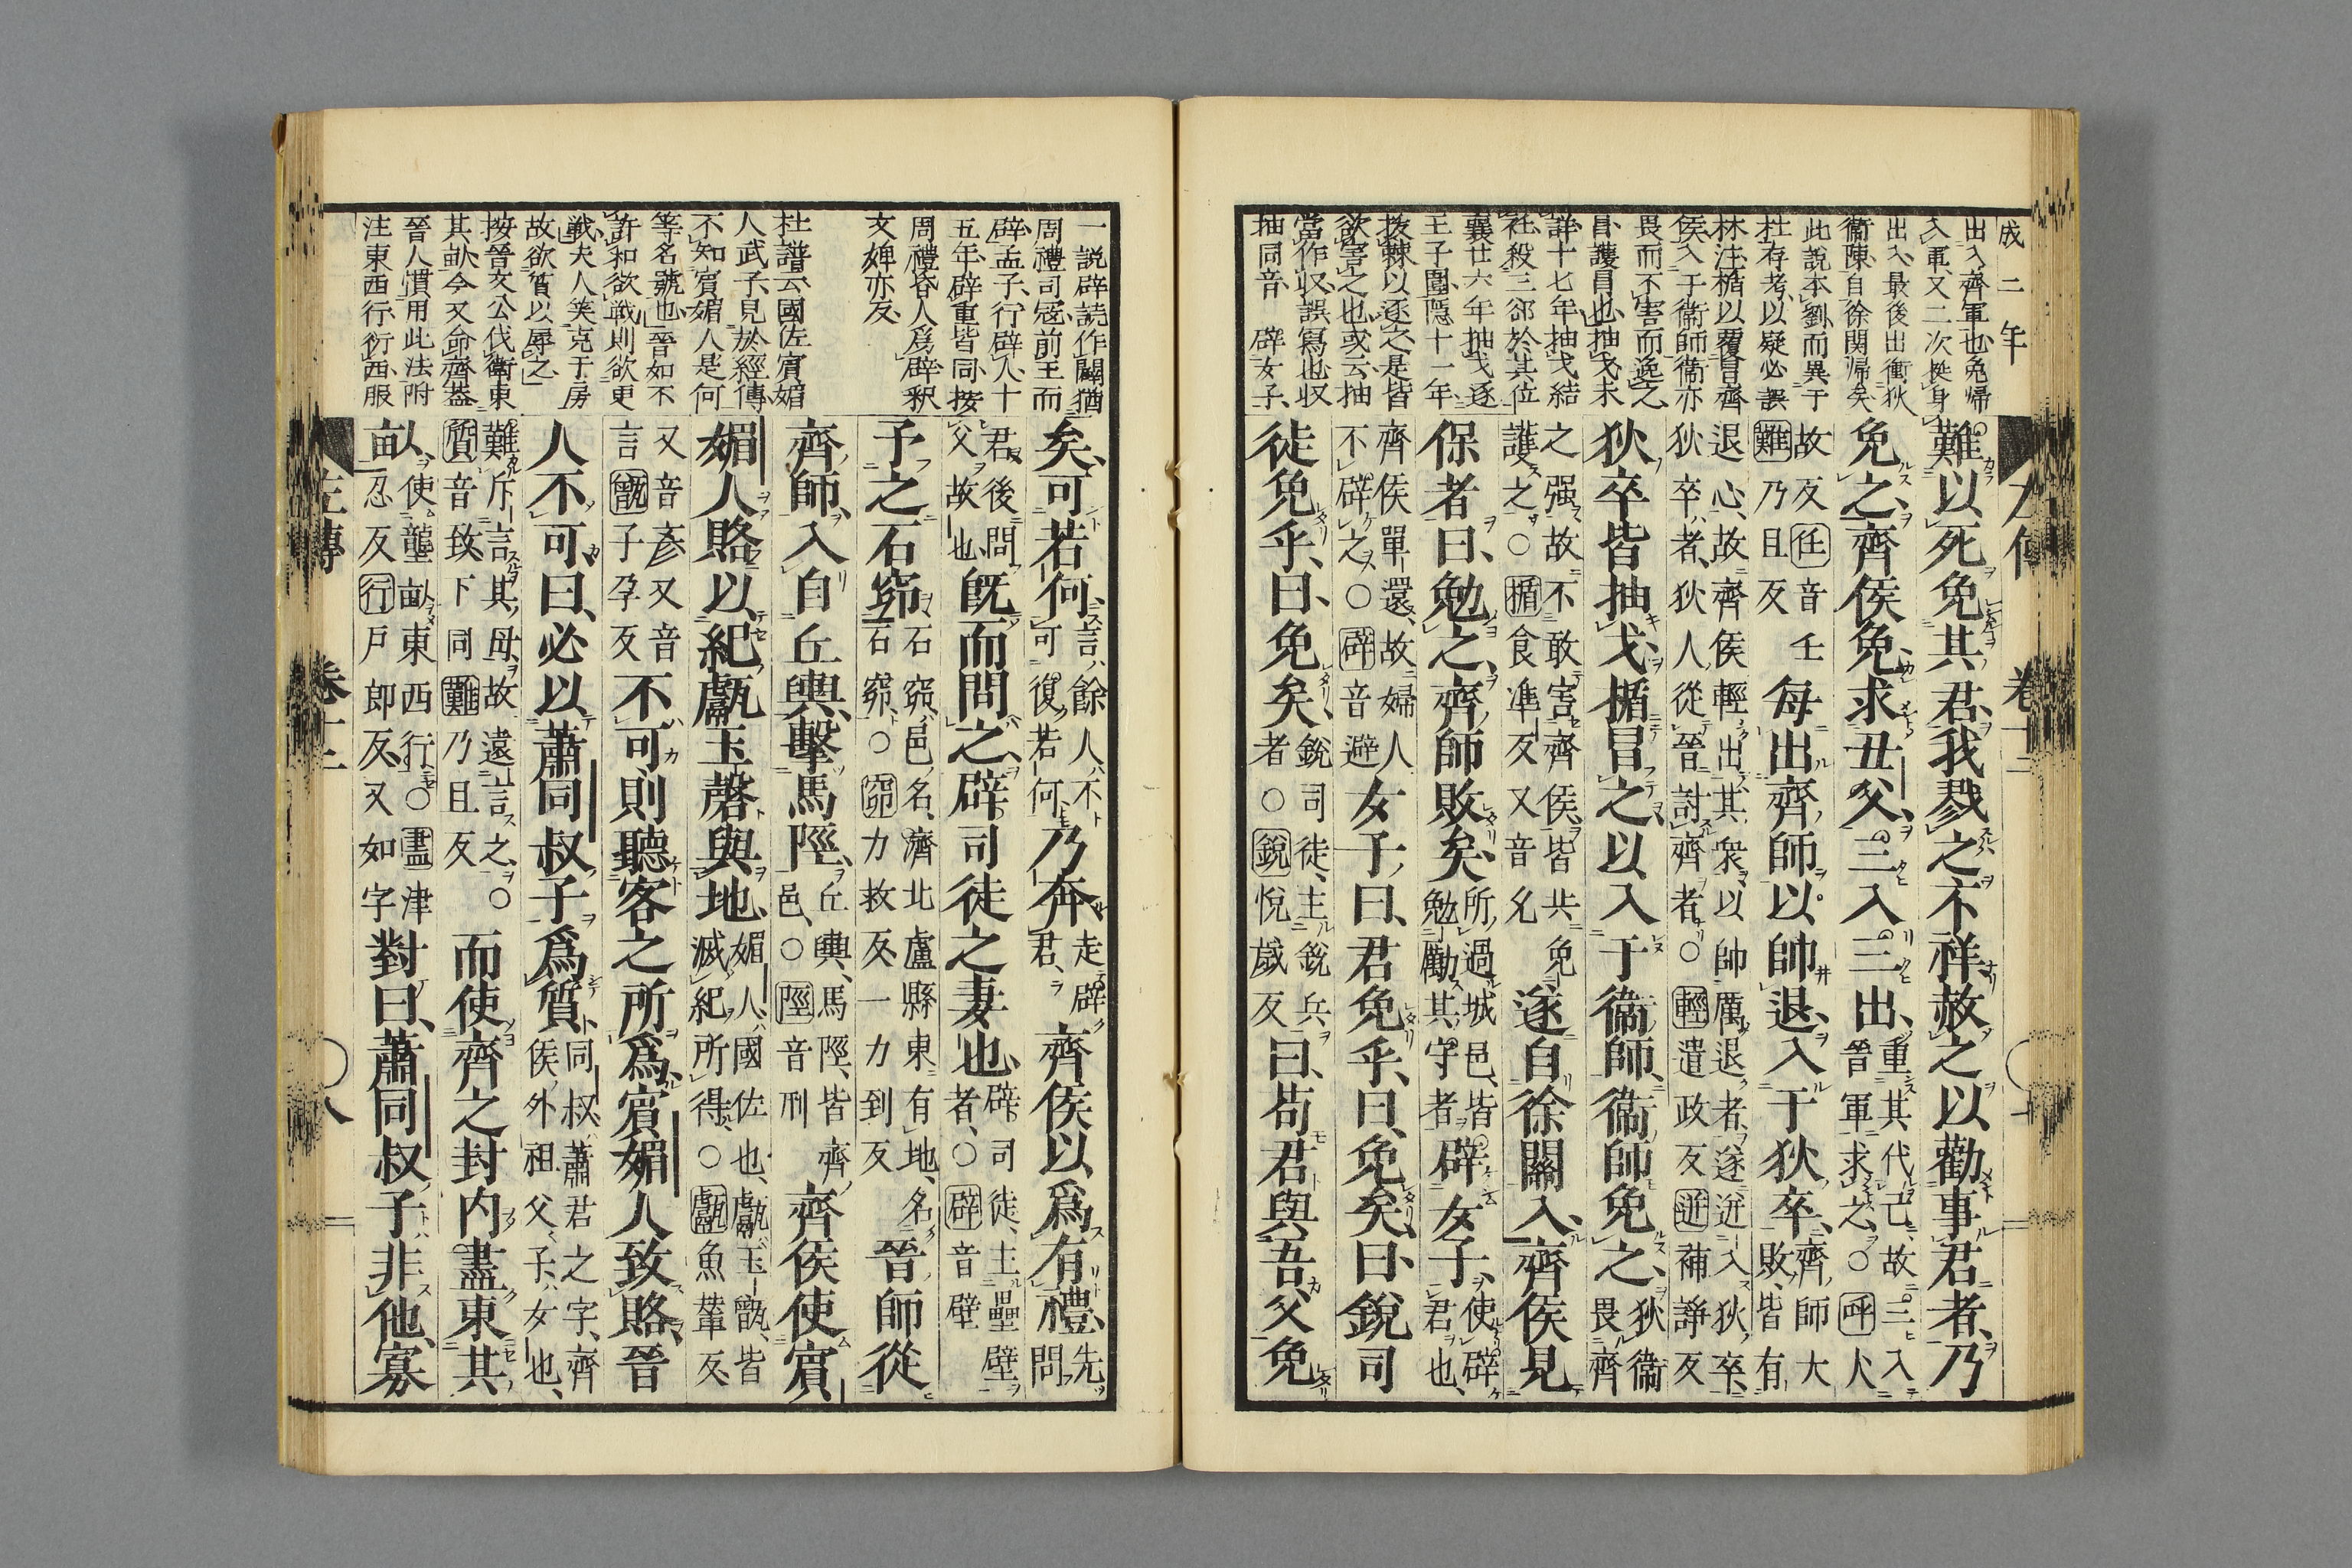 成二年
出入齊軍也免歸
入軍又二次挺身
出入最後出衝狄
衞陳自徐関帰矣
此說本劉而異于
杜存考以疑必誤
林注楯以覆冒齊
侯入于衞師衞亦
畏而不害而逸之
冒護冒也抽戈未
詳十七年抽戈結
衽殺三郤於其位
襄廿六年抽戈逐
王子圍隱十一年
拔棘以逐之是皆
欲害之也或云抽
當作収誤冩也収
抽同音 辟女子
難以死免其君我戮之不祥赦之以勸事君者乃
免之齊侯免求丑父三入三出重其代己故三入晉軍求之○呼火
故反任音壬難乃且反每出齊師以帥退入于狄卒齊師大敗皆有
退心故齊侯輕出其衆以帥厲退者遂迸入狄卒狄卒者狄人從晉討齊者○輕遣政反迸補諍反
狄卒皆抽戈楯冒之以入于衞師衞師免之狄衞畏齊
之强故不敢害齊侯皆共免護之○楯食準反又音允遂自徐關入齊侯見
保者曰勉之齊師敗矣所過城邑皆勉勵其守者辟女子使辟君也
齊侯單還故婦人不辟之○辟音避女子曰君免乎曰免矣曰銳司
徒免乎曰免矣銳司徒主銳兵者○銳悅歲反曰苟君與吾父免
一說辟読作闢猶
周禮司寇前王而
辟孟子行辟人十
五年辟重皆同按
周禮昏人爲辟釈
文婢亦反
杜譜云國佐賓媚
人武子見於經傳
不知賓媚人是何
等名號也晉如不
許和欲戰則欲更
戰夫人笑克于房
故欲質以辱之
按晉文公伐衞東
其畝今又命齊葢
晉人慣用此法附
注東西行衍西服
矣可若何言餘人不可復若何乃奔走辟君齊侯以爲有禮先問
君後問父故也旣而問之辟司徒之妻也辟司徒主壘壁者○辟音壁
予之石窌石窌邑名濟北盧縣東有地名石窌○窌力救反一力到反晉師從
齊師入自丘輿擊馬陘丘輿馬陘皆齊邑○陘音刑齊侯使賓
媚人賂以紀甗玉磬與地媚人國佐也甗玉甑皆滅紀所得○甗魚輦反
又音彥又音言甑子孕反不可則聽客之所爲賓媚人致賂晉
人不可曰必以蕭同叔子爲質同叔蕭君之字齊侯外祖父子女也
難斥言其母故遠言之○質音致下同難乃且反而使齊之封内盡東其
畝使壟畝東西行○盡津忍反行戸郎反又如字對曰蕭同叔子非他寡
左傳 卷十二 ○八